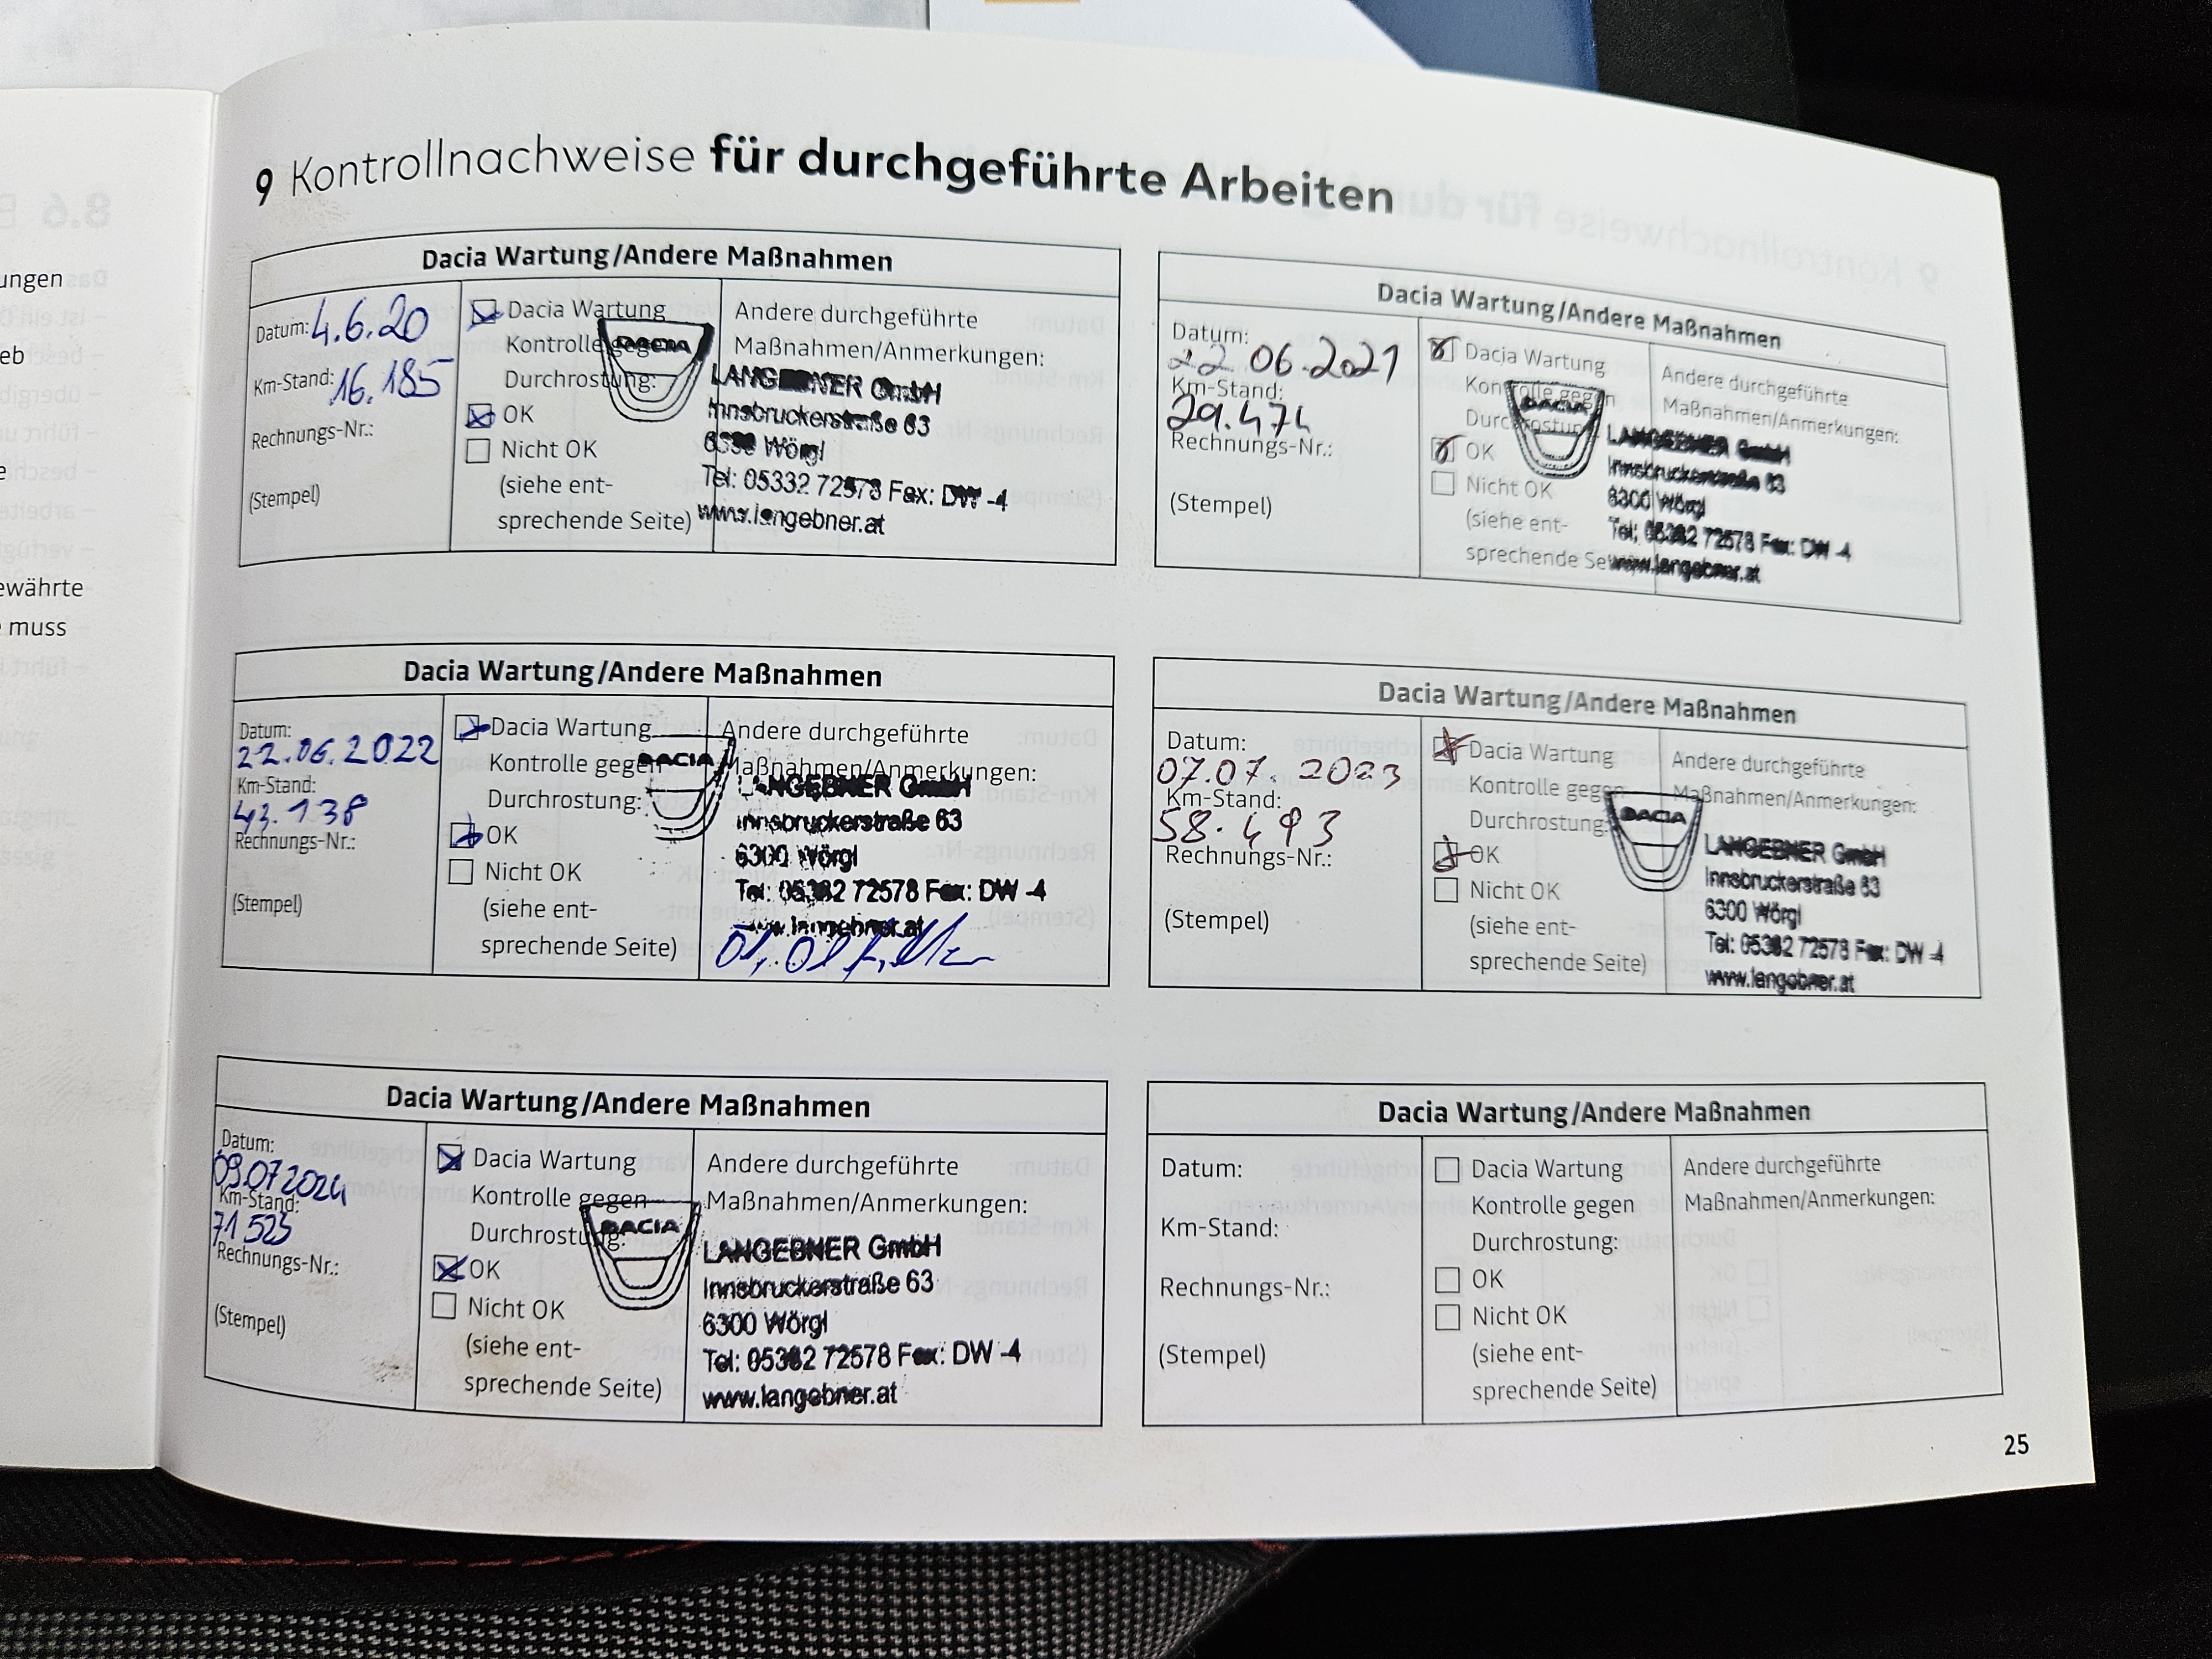 ungen
eb
e
ewährte
muss
9 Kontrollnachweise für durchgeführte Arbeiten
Dacia Wartung/Andere Maßnahmen
Datum: 4.6.20
Km-Stand: 16.185
Rechnungs-Nr.:
(Stempel)
Dacia Wartung
Kontrolle gegen
Durchrostung:
OK
Nicht OK
(siehe ent-
sprechende Seite)
Andere durchgeführte
Maßnahmen/Anmerkungen:
DACIA
LANGEBNER GmbH
Innsbruckerstraße 63
Wörgl
Tel: 05332 72578 Fax: DW -4
www.langebner.at
Dacia Wartung/Andere Maßnahmen
Datum:
22.06.2021
Km-Stand:
29.474
Rechnungs-Nr.:
(Stempel)
Dacia Wartung
Kontrolle gegen
Durchrostung:
OK
Nicht OK
(siehe ent-
sprechende Seite)
Andere durchgeführte
Maßnahmen/Anmerkungen:
DACIA
LANGEBNER GmbH
Innsbruckerstraße 63
6300 Wörgl
Tel: 05332 72578 Fax: DW -4
www.langebner.at
Dacia Wartung/Andere Maßnahmen
Datum:
22.06.2022
Km-Stand:
43.138
Rechnungs-Nr.:
(Stempel)
Dacia Wartung
Kontrolle gegen
Durchrostung:
OK
Nicht OK
(siehe ent-
sprechende Seite)
Andere durchgeführte
Maßnahmen/Anmerkungen:
DACIA
LANGEBNER GmbH
Innsbruckerstraße 63
6300 Wörgl
Tel: 05332 72578 Fax: DW -4
www.langebner.at
Dacia Wartung/Andere Maßnahmen
Datum:
07.07.2023
Km-Stand:
58.493
Rechnungs-Nr.:
(Stempel)
Dacia Wartung
Kontrolle gegen
Durchrostung:
OK
Nicht OK
(siehe ent-
sprechende Seite)
Andere durchgeführte
Maßnahmen/Anmerkungen:
DACIA
LANGEBNER GmbH
Innsbruckerstraße 63
6300 Wörgl
Tel: 05332 72578 Fax: DW -4
www.langebner.at
Dacia Wartung/Andere Maßnahmen
Datum:
09.07.2024
Km-Stand:
71525
Rechnungs-Nr.:
(Stempel)
Dacia Wartung
Kontrolle gegen
Durchrostung:
OK
Nicht OK
(siehe ent-
sprechende Seite)
Andere durchgeführte
Maßnahmen/Anmerkungen:
DACIA
LANGEBNER GmbH
Innsbruckerstraße 63
6300 Wörgl
Tel: 05332 72578 Fax: DW -4
www.langebner.at
Dacia Wartung/Andere Maßnahmen
Datum:
Km-Stand:
Rechnungs-Nr.:
(Stempel)
Dacia Wartung
Kontrolle gegen
Durchrostung:
OK
Nicht OK
(siehe ent-
sprechende Seite)
Andere durchgeführte
Maßnahmen/Anmerkungen:
25